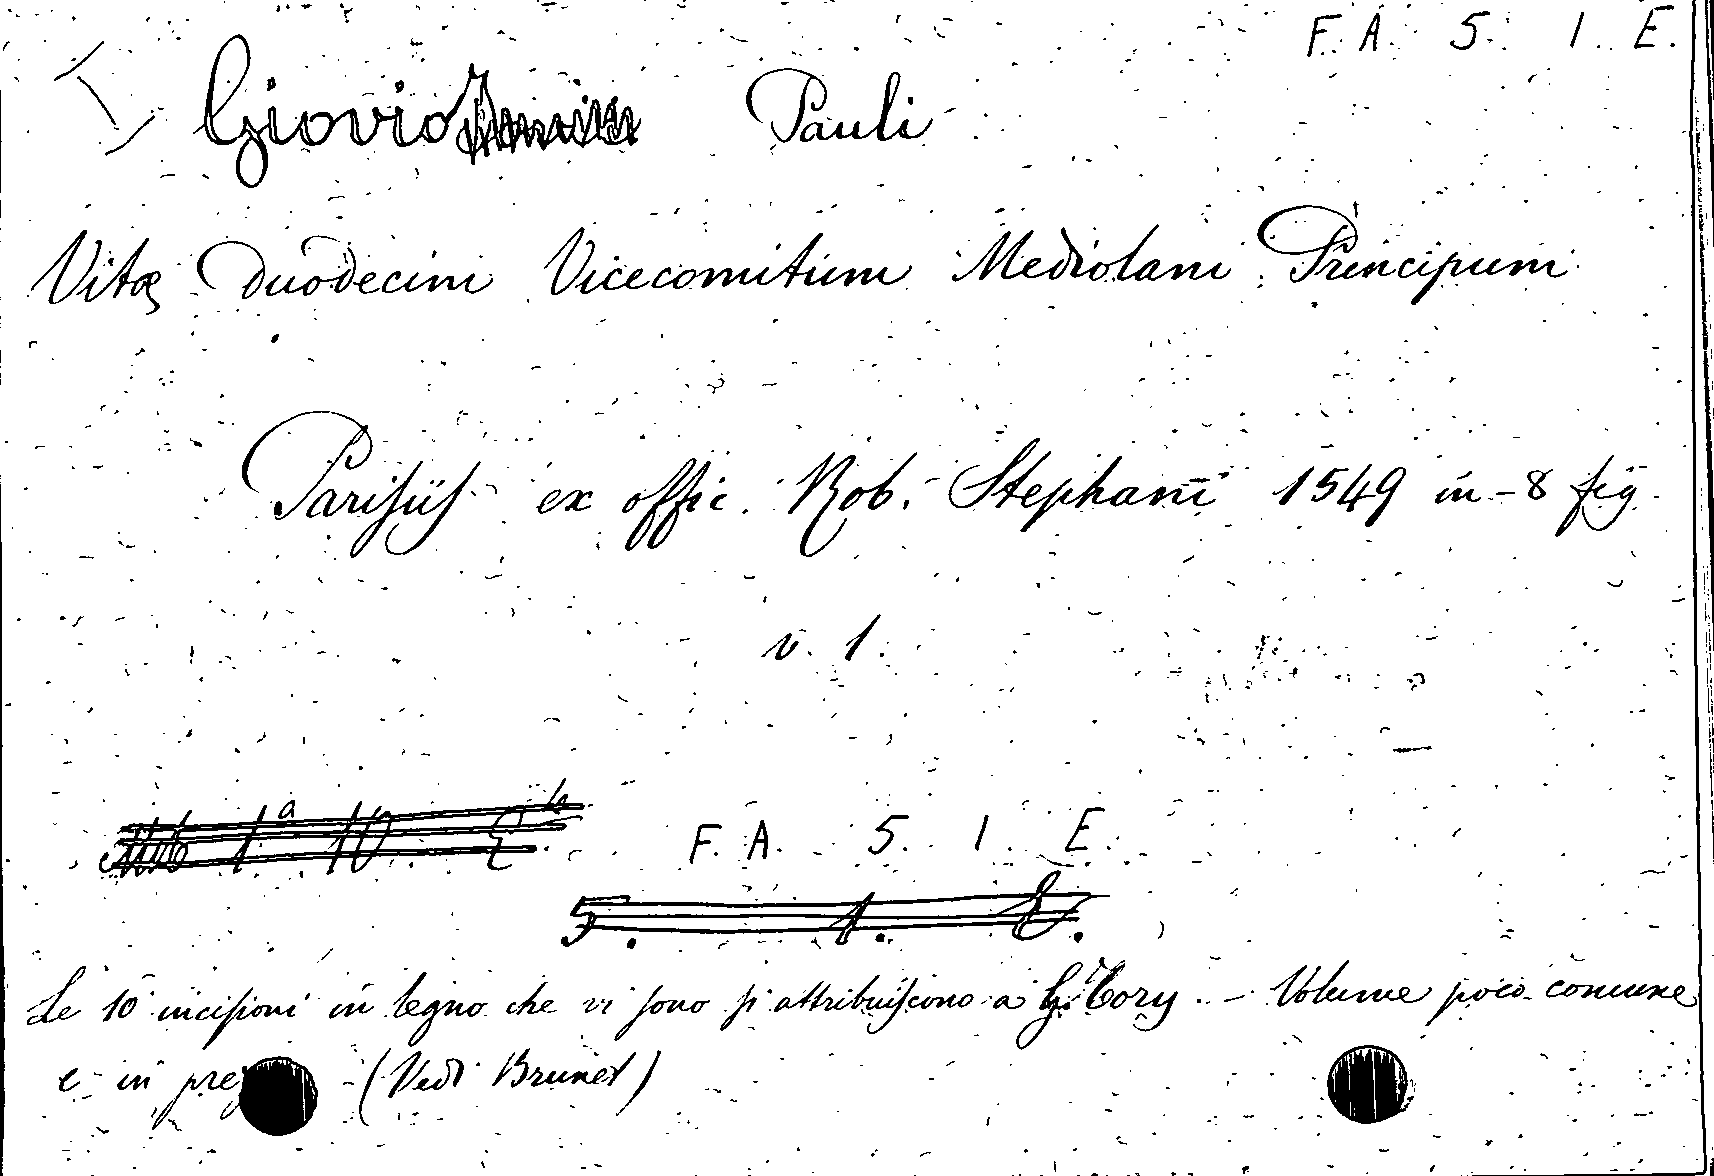 F. A. 5. 1. E.
Giovio Pauli
Vitæ Duodecim Vicecomitum Mediolani Principum
Parisiis ex offic. Rob. Stephani 1549 in-8 fig.
v. 1.
1ª 10
F. A. 5. 1. E.
5. 1. E.
Le 10 incisioni in legno che vi sono si attribuiscono a G. Tory. - Volume poco comune
e in (Vedi Brunet)